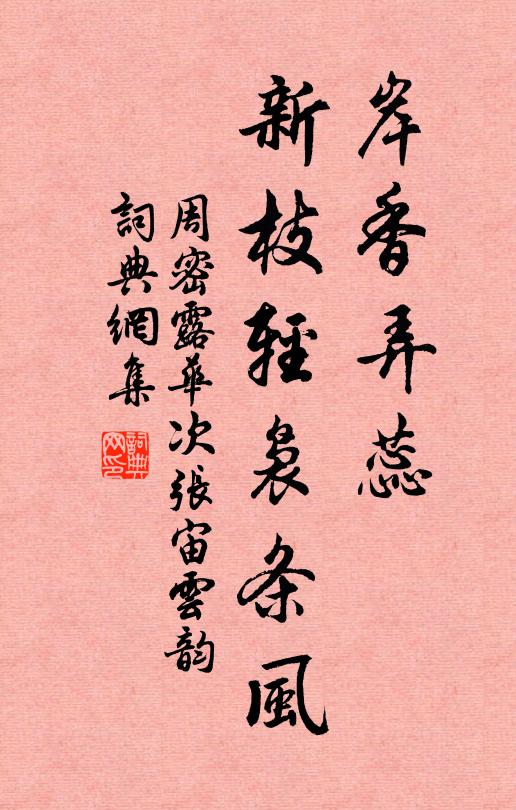 岸香弄蕊
新枝輕裊条風
周密露華次張宙雲韵
詞典網集
詞典網印